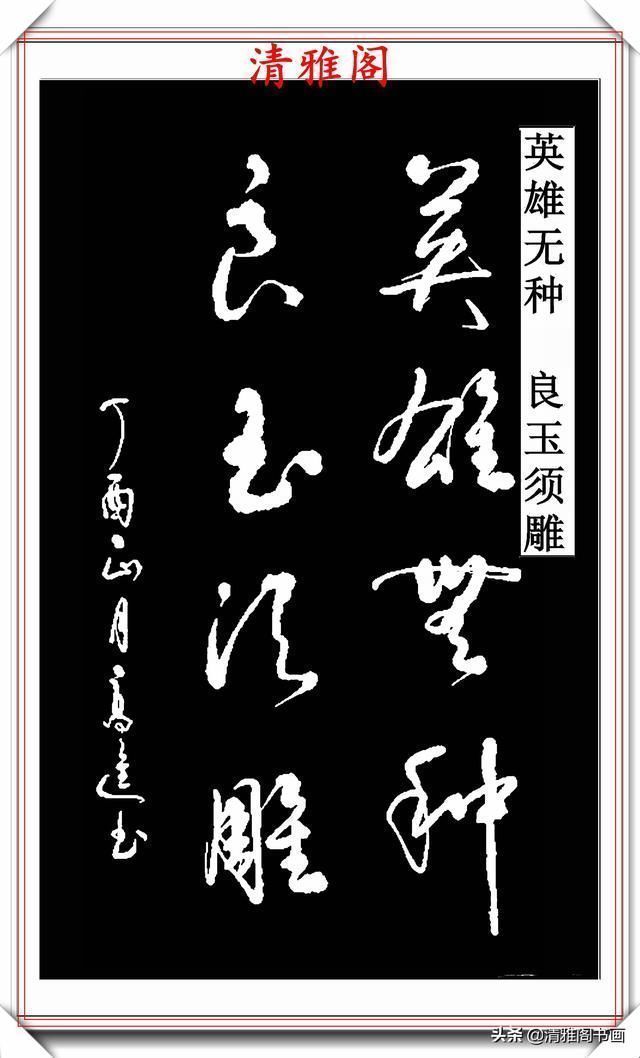 清雅阁
英雄无种 良玉须雕
英雄無種
良玉须雕
丁酉正月高逵书
头条 @清雅阁书画